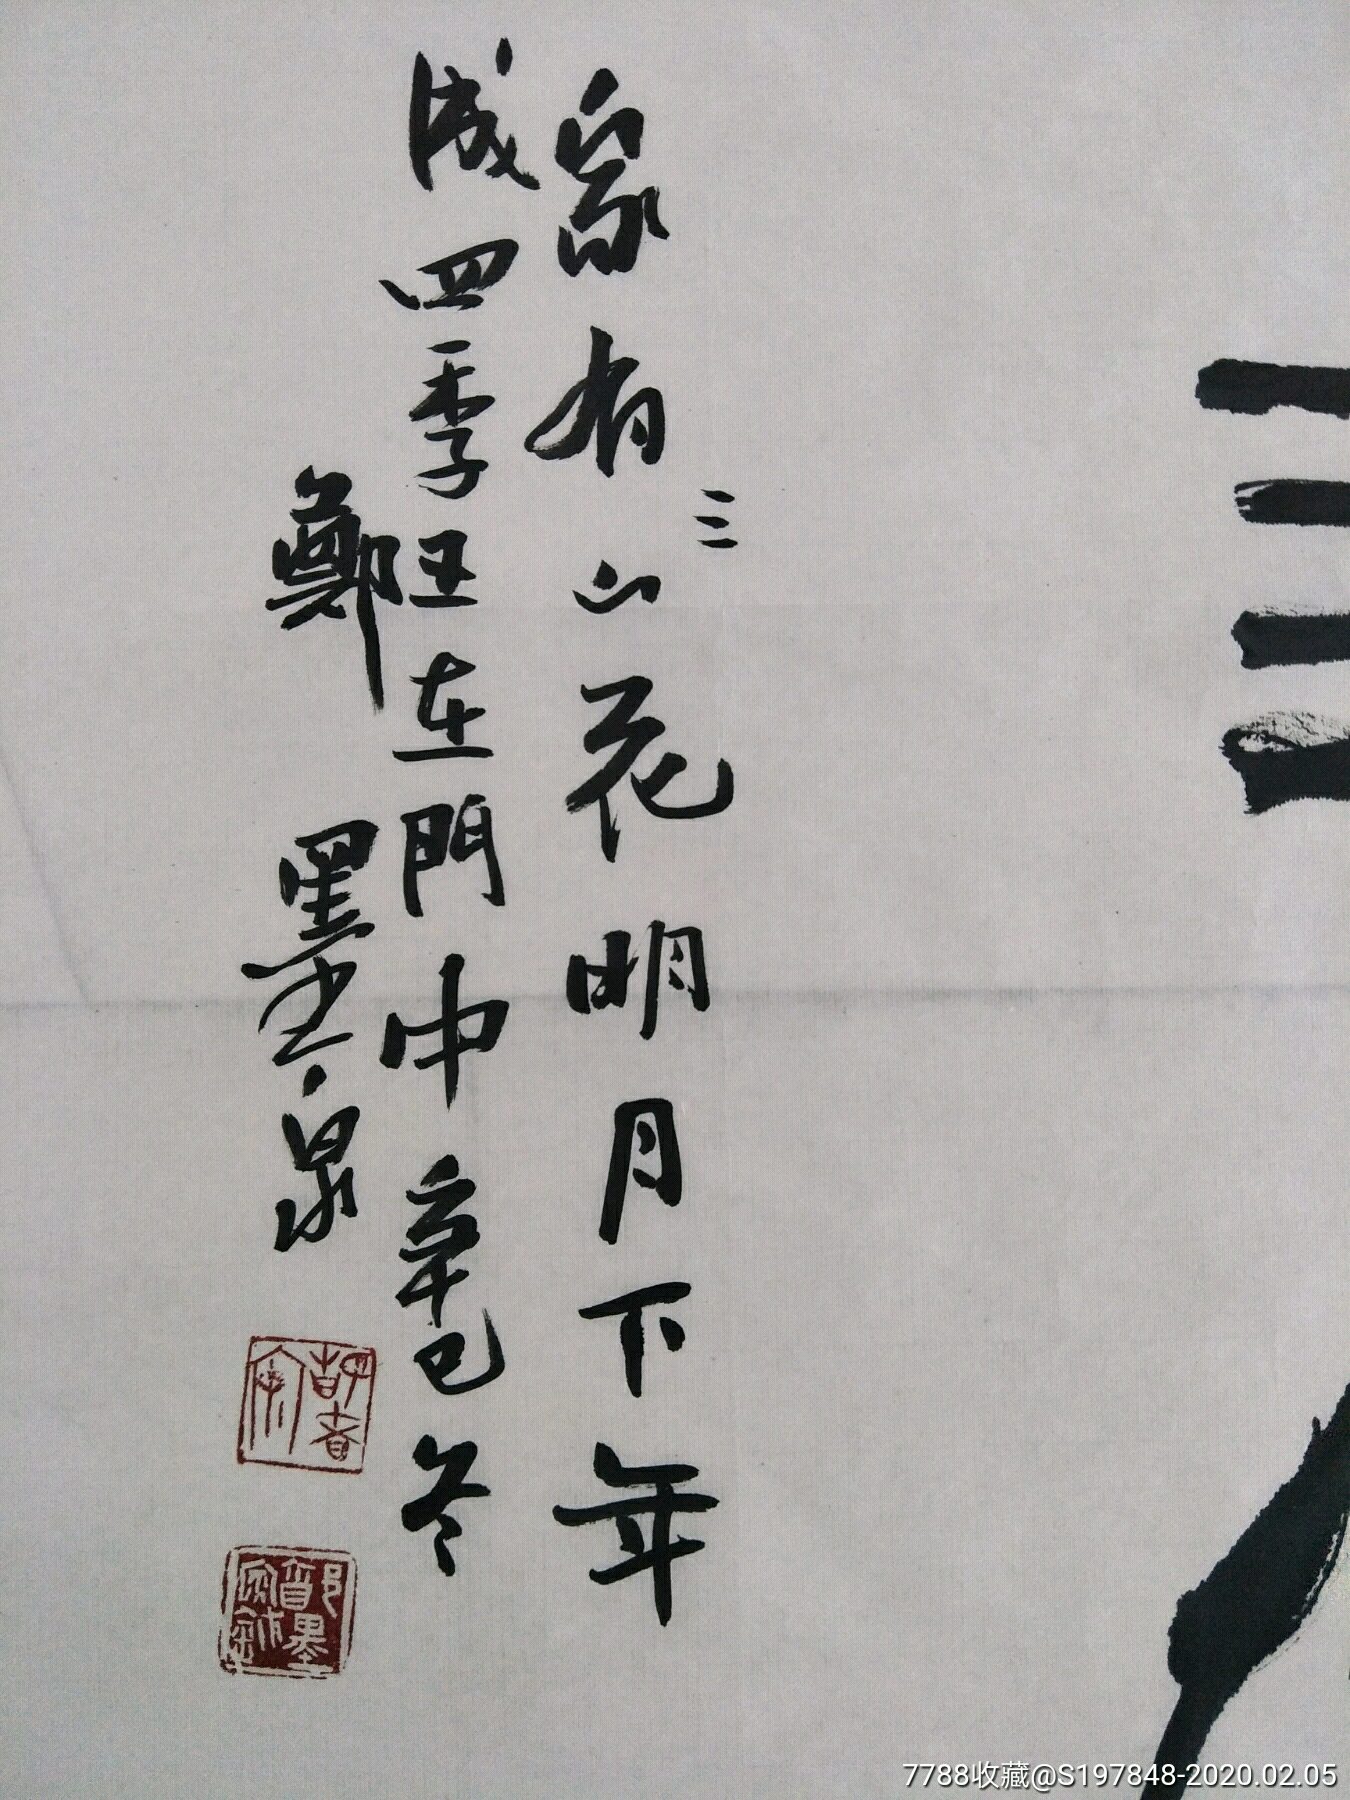 三
家有山花明月下年
成四季旺在門中辛巳冬
鄭墨泉
7788收藏@S197848-2020.02.05